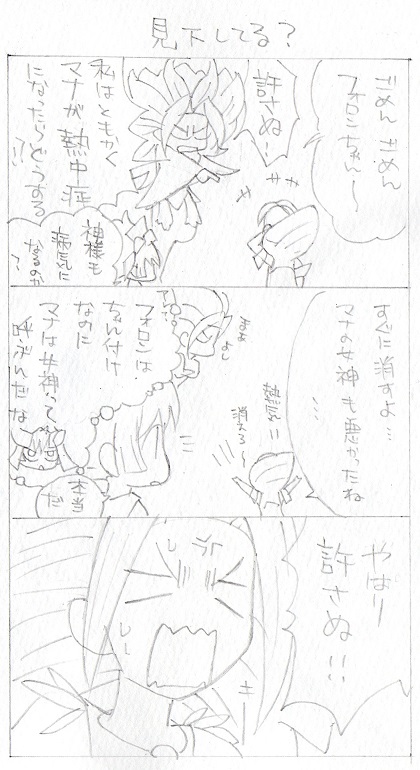 見下してる？
ごめんごめん
フォロンちゃん〜
許さぬ！
私はともかく
マナが熱中症
になったらどうする
!!
神様も
病気に
なるのか
？
すぐに消すよ…
マナの女神も悪かったね
…
熱気!!
消えろ〜
まぁ
よし
フォロンは
ちゃん付け
なのに
マナは女神って
呼ぶんだな
本当
だ
やはり
許さぬ!!